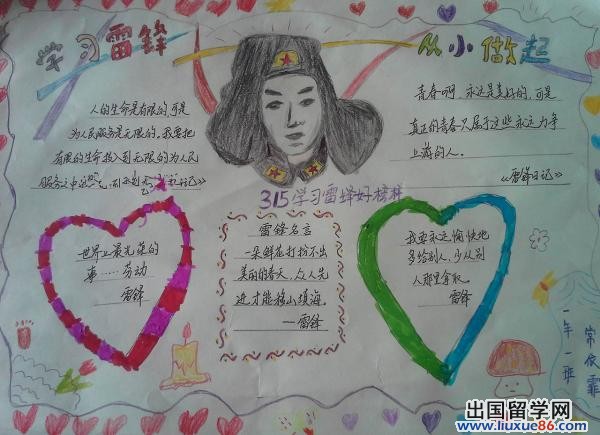 学习雷锋
从小做起
人的生命是有限的,可是
为人民服务是无限的,我要把
有限的生命投入到无限的为人民
服务之中去
日记》
青春啊,永远是美好的,可是
真正的青春只属于这些永远力争
上游的人。
《雷锋日记》
315学习雷锋好榜样
世界上最光荣的
事……劳动
雷锋
雷锋名言
一朵鲜花打扮不出
美丽的春天,众人先
进才能移山填海。
——雷锋
我要永远愉快地
多给别人,少从别
人那里拿取。
雷锋
一年一班
常依霏
出国留学网
www.liuxue86.com